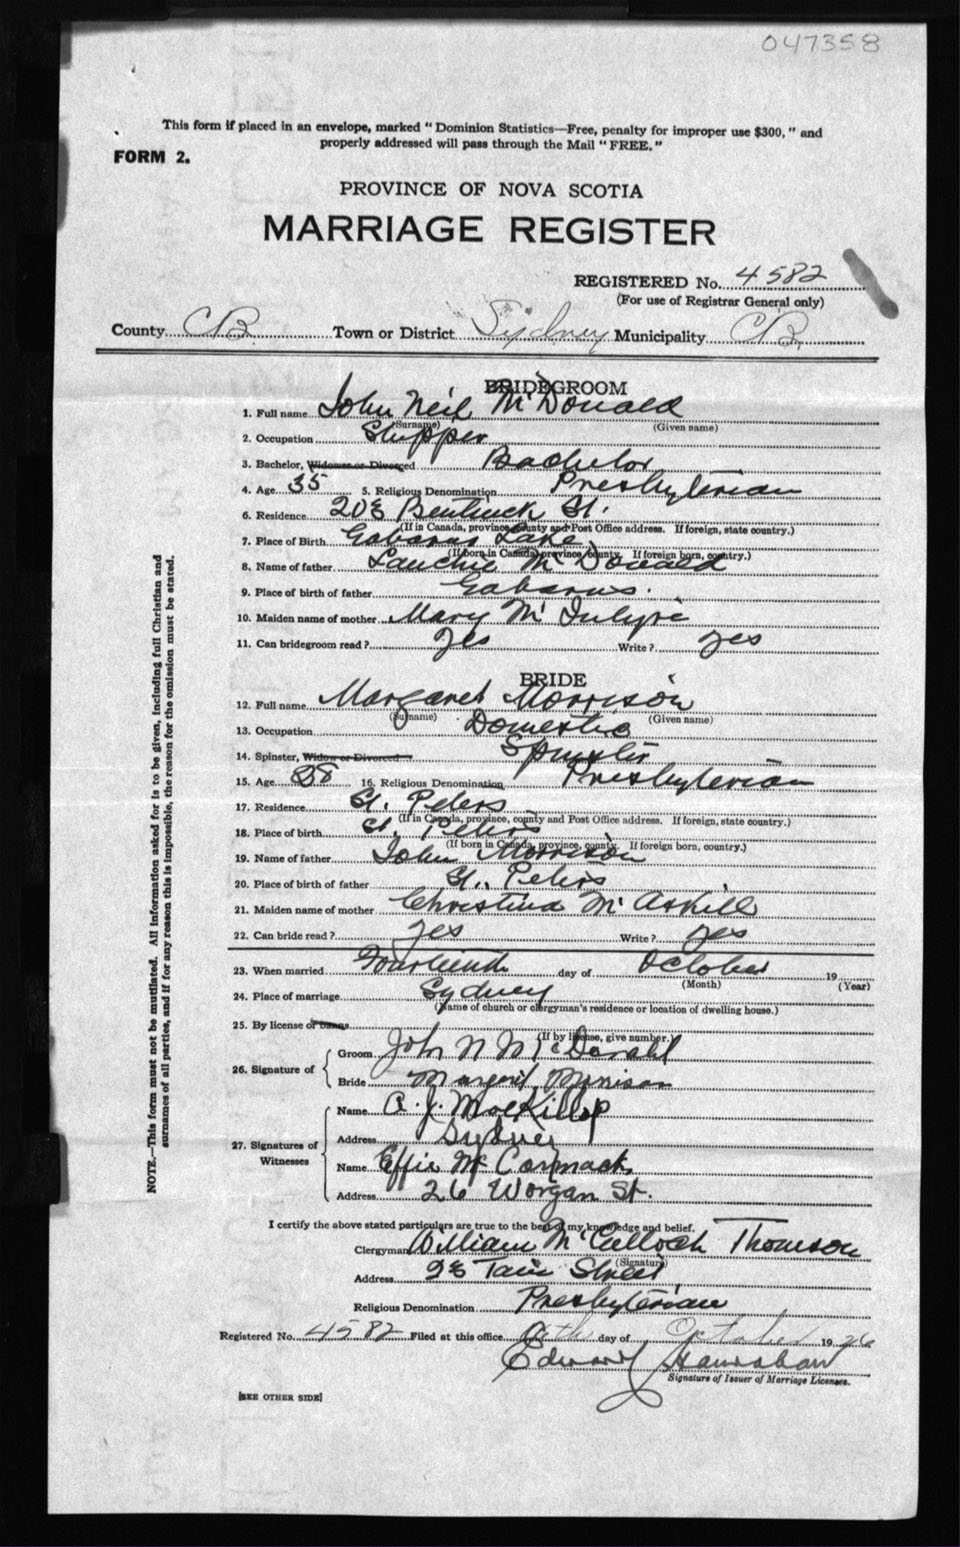 047358
This form if placed in an envelope, marked "Dominion Statistics—Free, penalty for improper use $300," and
properly addressed will pass through the Mail "FREE."
FORM 2.
PROVINCE OF NOVA SCOTIA
MARRIAGE REGISTER
REGISTERED No. 4582
(For use of Registrar General only)
County C.B. Town or District Sydney Municipality C.B.
BRIDEGROOM
1. Full name John Neil McDonald
(Surname) (Given name)
2. Occupation Shipper
3. Bachelor, Widower or Divorced Bachelor
4. Age 35 5. Religious Denomination Presbyterian
6. Residence 208 Bentinck St.
(If in Canada, province, county and Post Office address. If foreign, state country.)
7. Place of Birth Gabarus Lake
(If born in Canada, province, county. If foreign born, country.)
8. Name of father Lauchie McDonald
9. Place of birth of father Gabarus.
10. Maiden name of mother Mary McIntyre
11. Can bridegroom read? Yes Write? yes
BRIDE
12. Full name Margaret Morrison
(Surname) (Given name)
13. Occupation Domestic
14. Spinster, Widow or Divorced Spinster
15. Age 28 16. Religious Denomination Presbyterian
17. Residence St. Peters
(If in Canada, province, county and Post Office address. If foreign, state country.)
18. Place of birth St. Peters
(If born in Canada, province, county. If foreign born, country.)
19. Name of father John Morrison
20. Place of birth of father St. Peters
21. Maiden name of mother Christina McAskill
22. Can bride read? yes Write? yes
23. When married Fourteenth day of October 19
(Month) (Year)
24. Place of marriage Sydney
(Name of church or clergyman's residence or location of dwelling house.)
25. By license or banns
(If by license, give number.)
26. Signature of { Groom John N McDonald
Bride Margaret Morrison
27. Signatures of Witnesses { Name A. J. MacKillop
Address Sydney
Name Effie McCormack
Address 26 Worgan St.
I certify the above stated particulars are true to the best of my knowledge and belief.
Clergyman William McCulloch Thomson
(Signature)
Address Street
Religious Denomination Presbyterian
Registered No. 4582 Filed at this office day of October 1926
Edward
Signature of Issuer of Marriage Licenses.
[SEE OTHER SIDE]
NOTE.—This form must not be mutilated. All information asked for is to be given, including full Christian and
surnames of all parties, and if for any reason this is impossible, the reason for the omission must be stated.